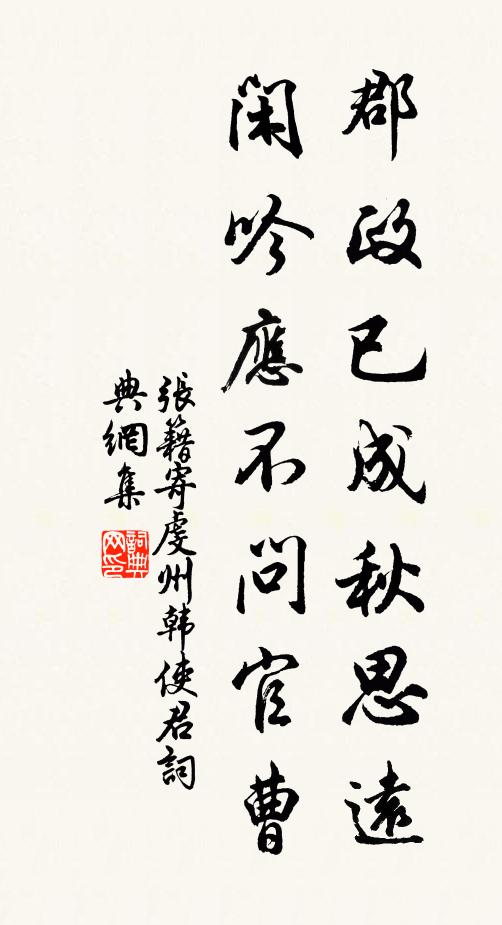 郡政已成秋思遠
閑吟應不問官曹
張籍寄虔州韩使君詞
典網集
詞典
网印